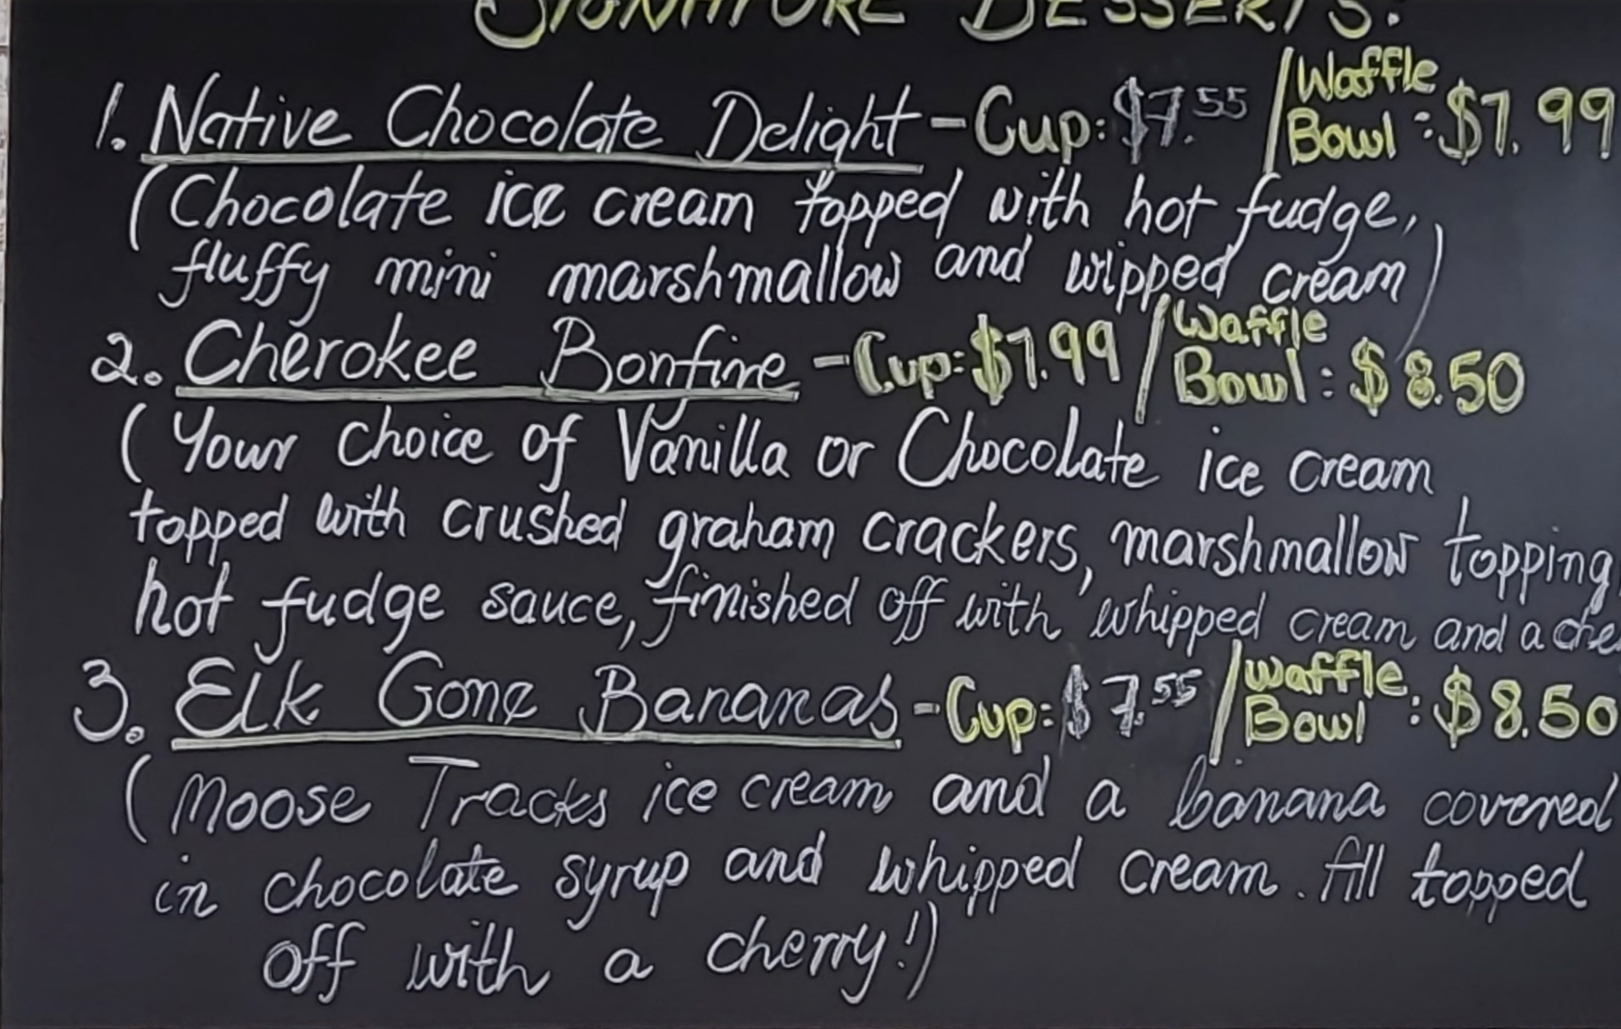 SIGNATURE DESSERTS:
1. Native Chocolate Delight - Cup: $7.55 / Waffle Bowl: $7.99
(Chocolate ice cream topped with hot fudge,
fluffy mini marshmallow and wipped cream)
2. Cherokee Bonfire - Cup: $7.99 / Waffle Bowl: $8.50
(Your Choice of Vanilla or Chocolate ice cream
topped with crushed graham crackers, marshmallow topping
hot fudge sauce, finished off with whipped cream and a che
3. Elk Gone Bananas - Cup: $7.55 / Waffle Bowl: $8.50
(Moose Tracks ice cream and a banana covered
in chocolate syrup and whipped cream. All topped
off with a cherry!)